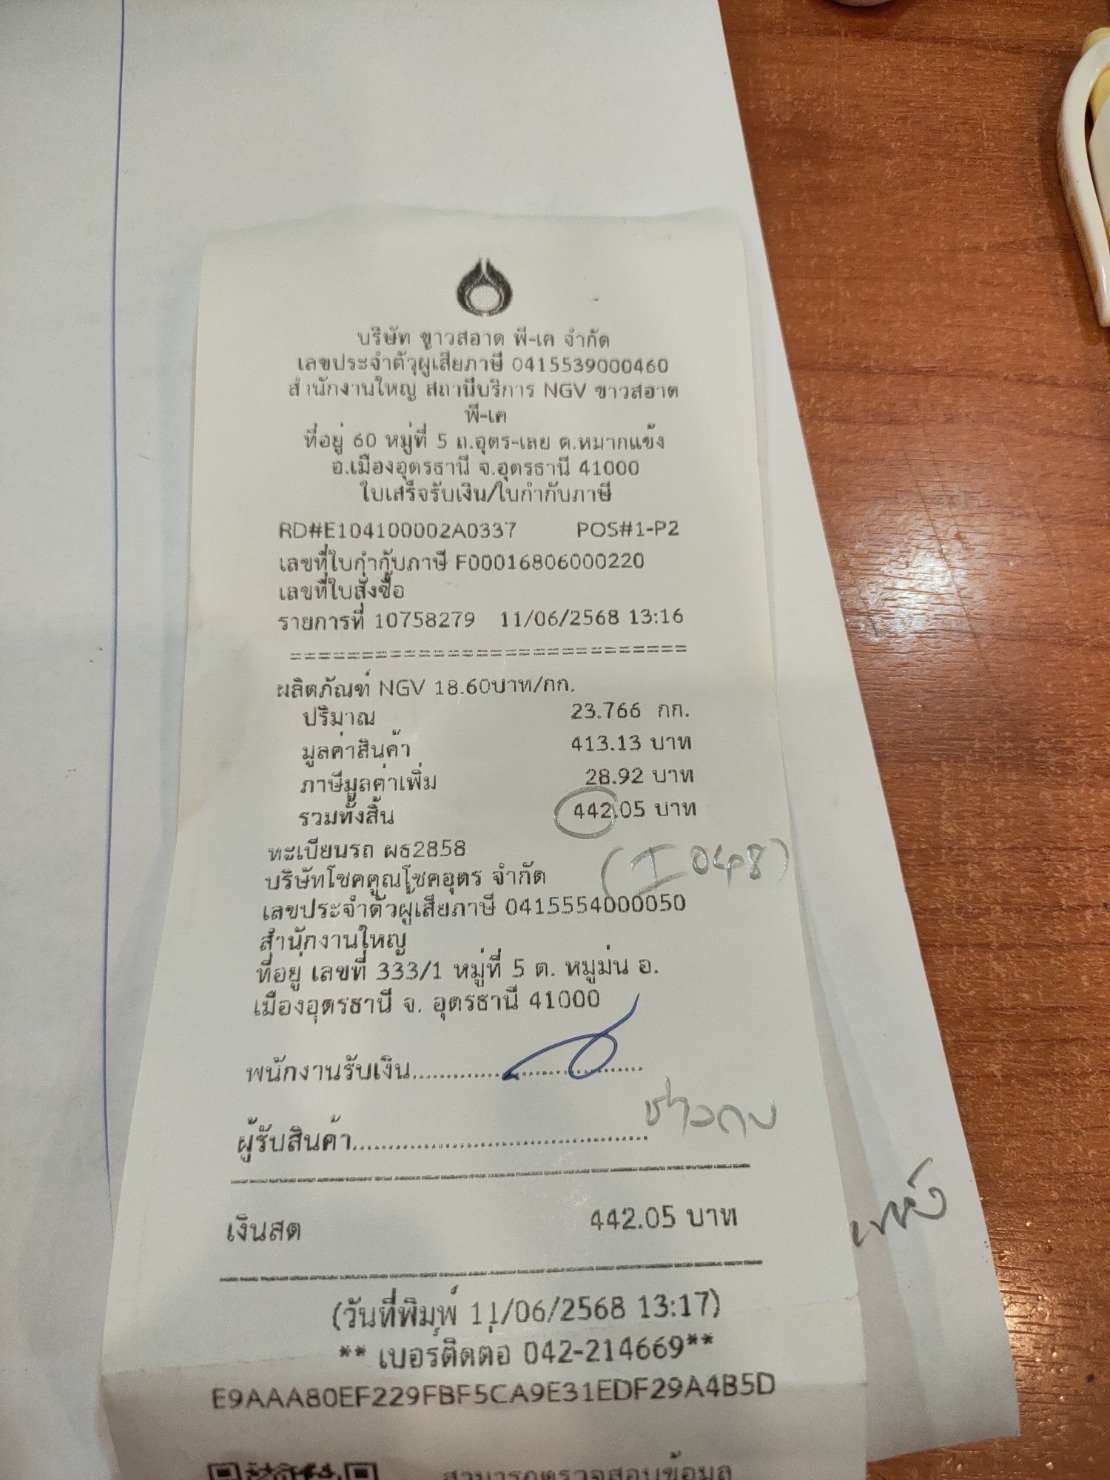 บริษัท ขาวสอาด พี-เค จำกัด
เลขประจำตัวผู้เสียภาษี 0415539000460
สำนักงานใหญ่ สถานีบริการ NGV ขาวสอาด
พี-เค
ที่อยู่ 60 หมู่ที่ 5 ถ.อุดร-เลย ต.หมากแข้ง
อ.เมืองอุดรธานี จ.อุดรธานี 41000
ใบเสร็จรับเงิน/ใบกำกับภาษี
RD#E104100002A0337 POS#1-P2
เลขที่ใบกำกับภาษี F00016806000220
เลขที่ใบสั่งซื้อ
รายการที่ 10758279 11/06/2568 13:16
ผลิตภัณฑ์ NGV 18.60บาท/กก.
ปริมาณ 23.766 กก.
มูลค่าสินค้า 413.13 บาท
ภาษีมูลค่าเพิ่ม 28.92 บาท
รวมทั้งสิ้น 442.05 บาท
ทะเบียนรถ ผธ2858
(I 048)
บริษัทโชคคูณโชคอุดร จำกัด
เลขประจำตัวผู้เสียภาษี 0415554000050
สำนักงานใหญ่
ที่อยู่ เลขที่ 333/1 หมู่ที่ 5 ต. หมูม่น อ.
เมืองอุดรธานี จ. อุดรธานี 41000
พนักงานรับเงิน
ผู้รับสินค้า
เงินสด 442.05 บาท
(วันที่พิมพ์ 11/06/2568 13:17)
** เบอร์ติดต่อ 042-214669**
E9AAA80EF229FBF5CA9E31EDF29A4B5D
สามารถตรวจสอบข้อมูล